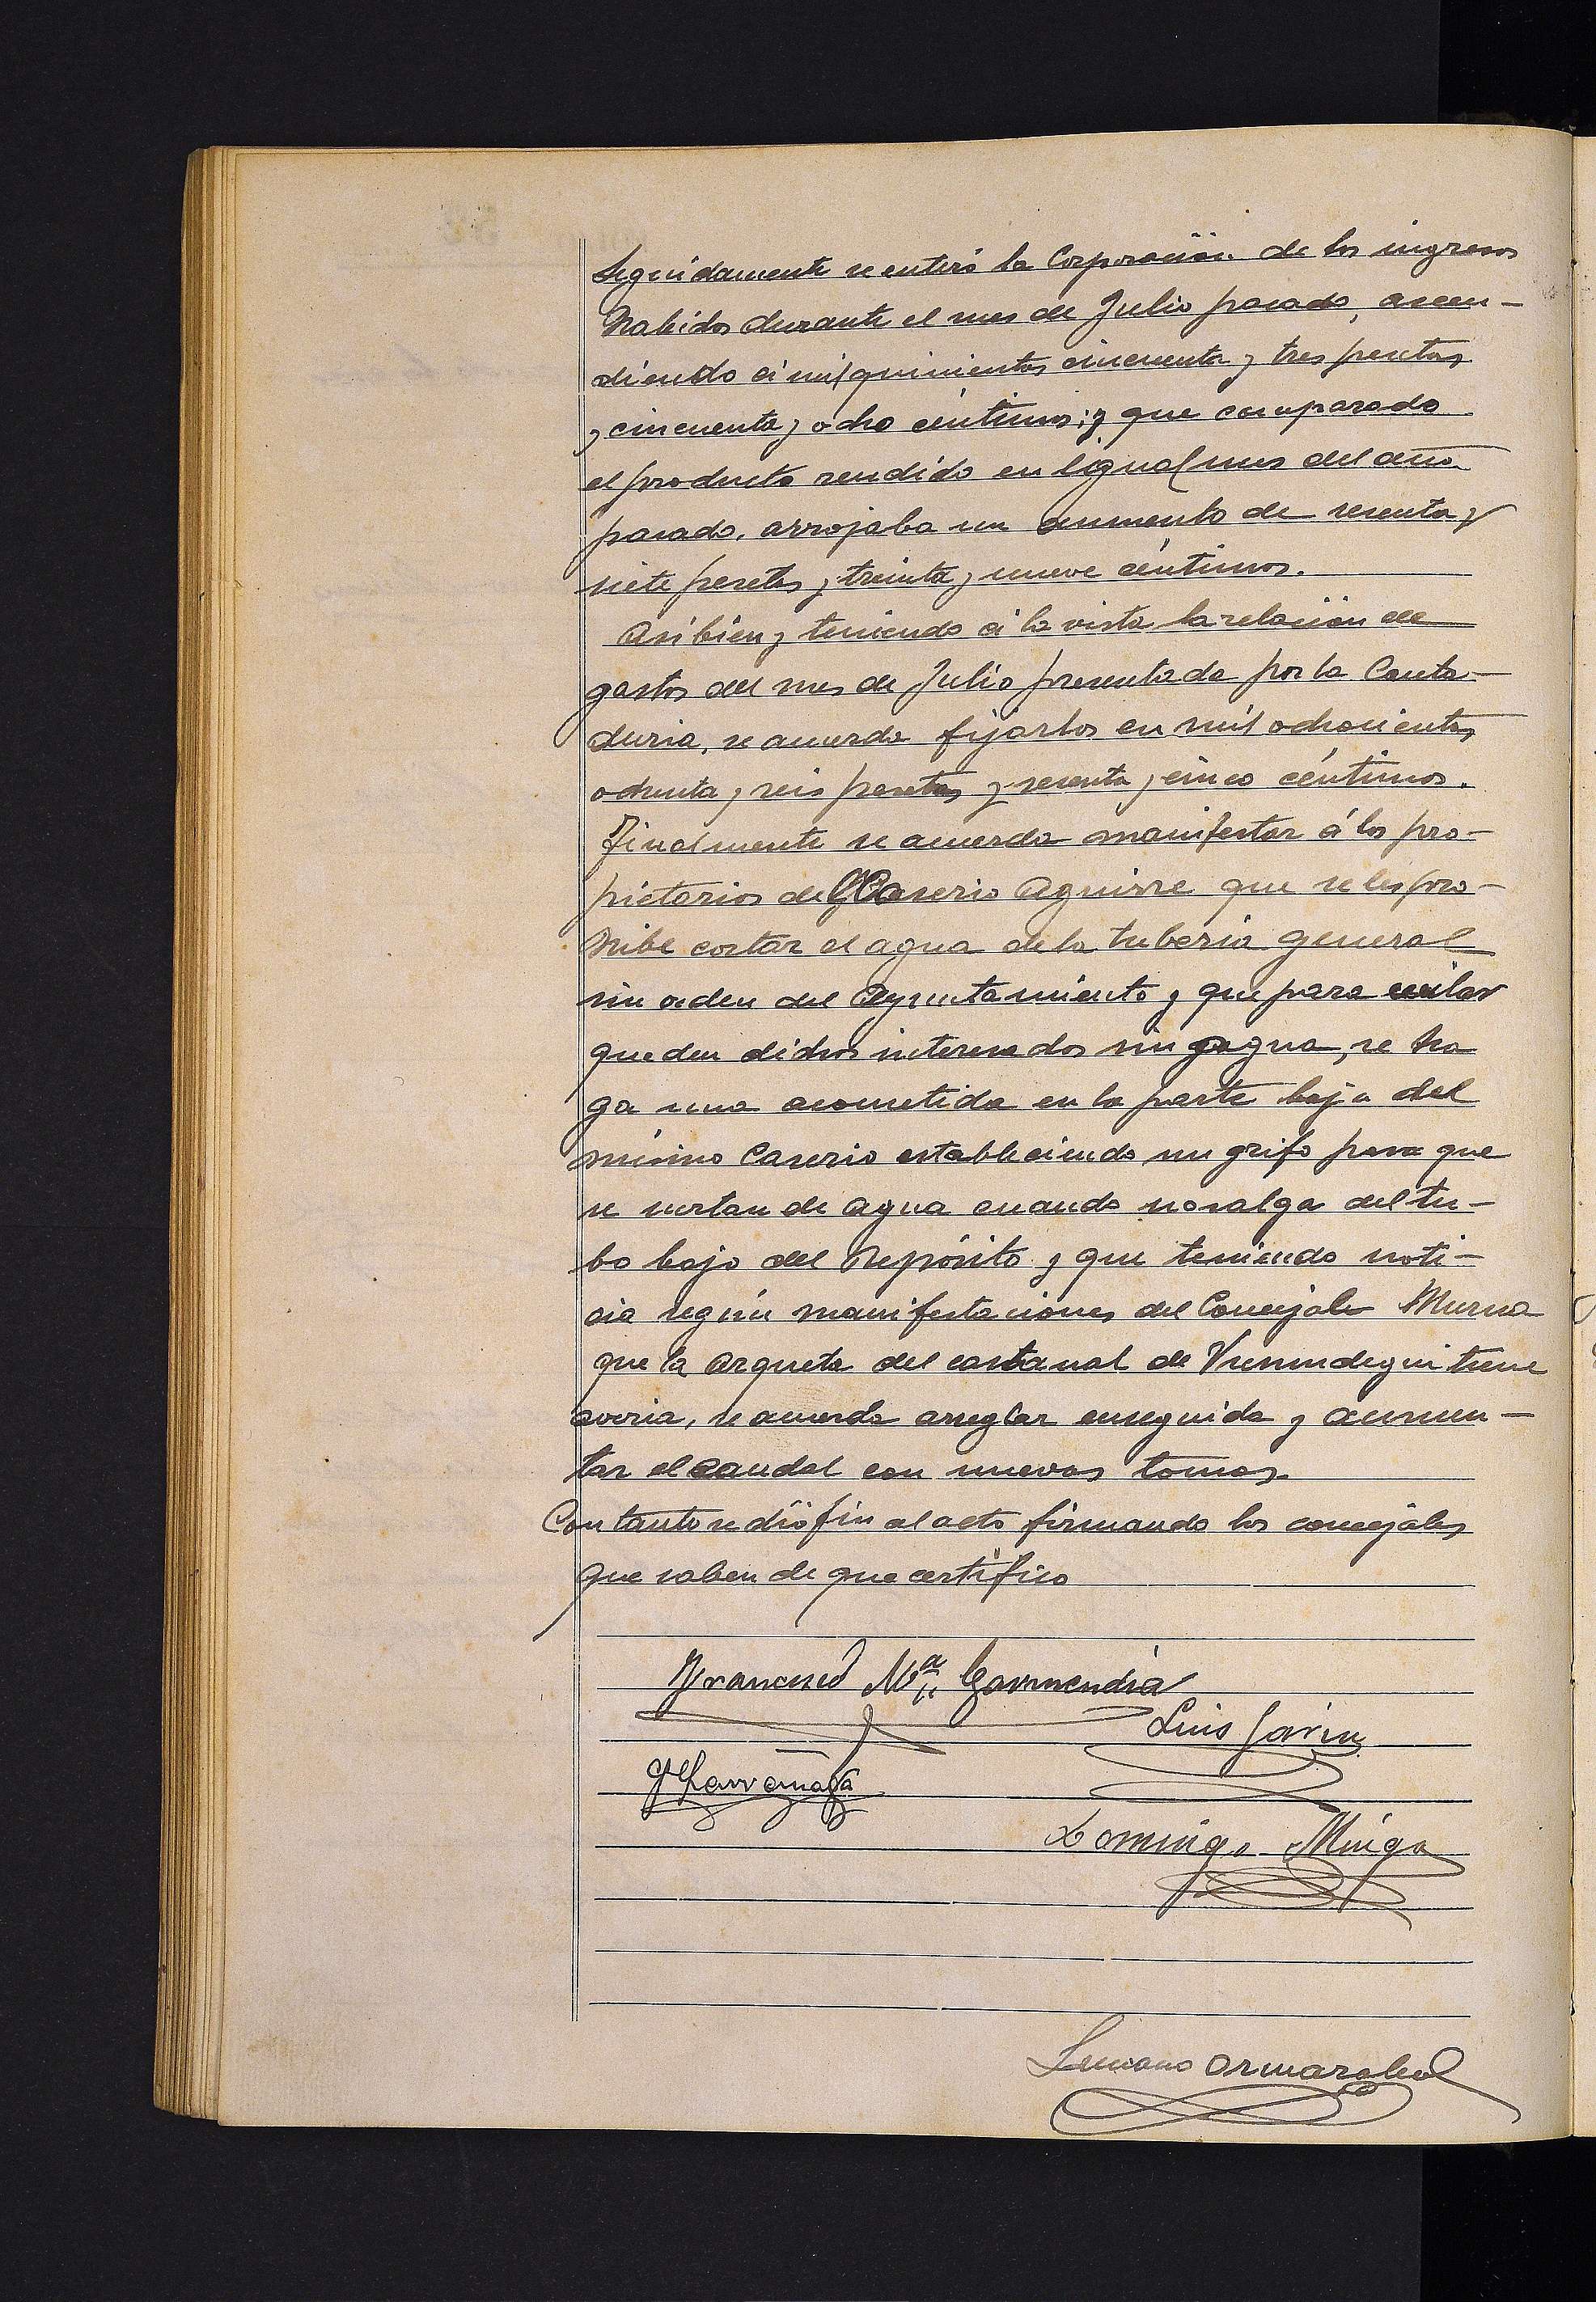 Seguidamente se enteró la Corporación de los ingresos
habidos durante el mes de Julio pasado, ascen-
diendo á mil quinientas cincuenta y tres pesetas
y cincuenta y ocho céntimos; y que comparado
el producto rendido en igual mes del año
pasado, arrojaba un aumento de sesenta y
siete pesetas y treinta y nueve céntimos.
Asi bien y teniendo á la vista la relación de
gastos del mes de Julio presentada por la Conta-
duria, se acuerda fijarlos en mil ochocientas
ochenta y seis pesetas y sesenta y cinco céntimos.
Finalmente se acuerda manifestar á los pro-
pietarios del Caserio Aguirre que se les pro-
hibe cortar el agua de la tuberia general
sin orden del Ayuntamiento y que para evitar
queden dichos interesados sin agua, se ha
ga una acometida en la parte baja del
mismo Caserio estableciendo un grifo para que
se surtan de agua cuando no salga del tu-
bo bajo del Depósito y que teniendo noti-
cia según manifestaciones del Concejal Murua
que la arqueta del castañal de tiene
averia, se acuerda arreglar enseguida y aumen-
tar el caudal con nuevas tomas.
Con tanto se dió fin al acto firmando los concejales
que saben de que certifico
Francisco Mª Garmendia
Luis Garin
Larrañaga
Domingo
Luciano Ormazabal